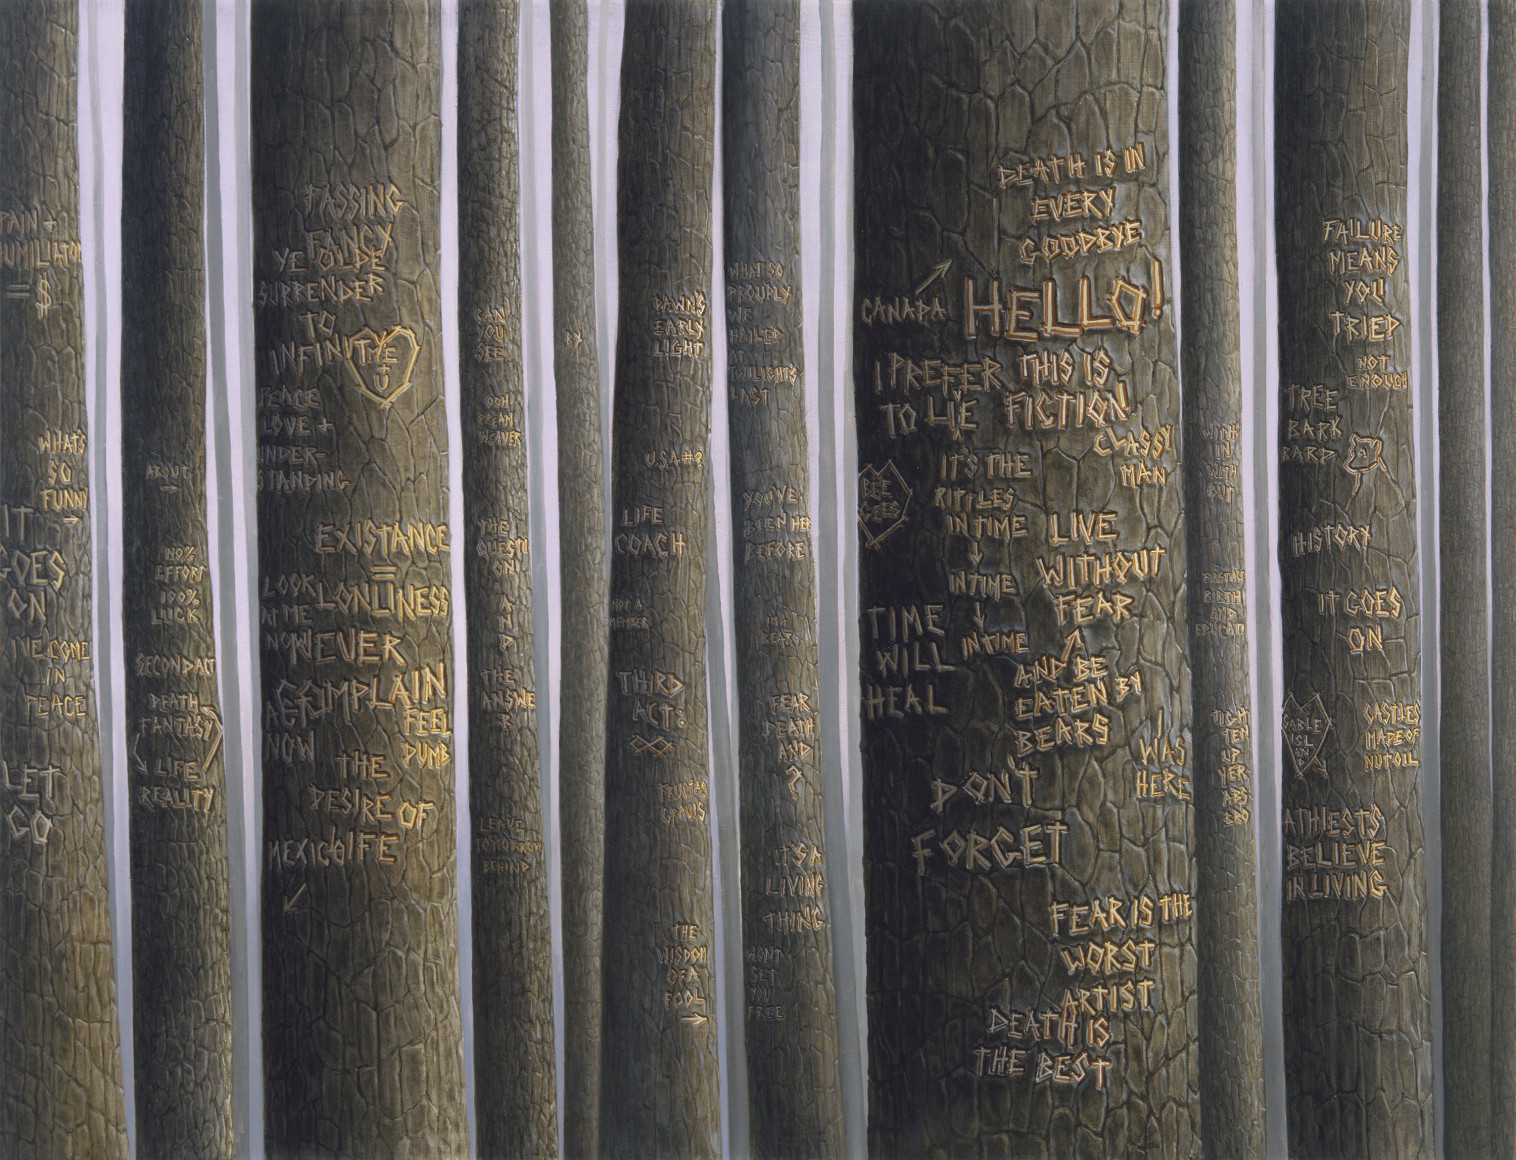 PAIN +
= $
WHATS
SO
FUNNY
IT
GOES
ON
COME
IN
PEACE
LET
GO
ABOUT
EFFORT
100%
LUCK
SECOND ACT
DEATH
FANTASY
LIFE
REALITY
PASSING
FANCY
YE OLDE
SURRENDER
TO
INFINITY
ME
+
U
PEACE
LOVE +
UNDER-
STANDING
EXISTANCE
=
LONLINESS
LOOK
AT ME
NOW
NEVER
COMPLAIN
AGE
NOW
FEEL
DUMB
THE
DESIRE OF
LIFE
MEXICO
CAN
YOU
SEE
OOH
DREAM
WEAVER
THE
QUESTI
ON
A
N
D
THE
ANSWE
R
LEAVE
TOMORROW
BEHIND
BY
DAWNS
EARLY
LIGHT
USA#?
LIFE
COACH
NOT A
MEMBER
THIRD
ACT?
THE
WISDOM
OF A
FOOL
WHAT SO
PROUDLY
WE
HAILED
AT
TWILIGHTS
LAST
YOU'VE
BEEN HERE
BEFORE
FEAR
DEATH
AND
?
IT'S A
LIVING
THING
WONT
SET
YOU
FREE
DEATH IS IN
EVERY
GOODBYE
CANADA
HELLO!
I PREFER
TO LIE
THIS IS
FICTION
CLASSY
MAN
BEE
GEES
IT'S THE
RIPPLES
IN TIME
IN TIME
IN TIME
LIVE
WITHOUT
FEAR
AND BE
EATEN BY
BEARS
TIME
WILL
HEAL
I WAS
HERE
DON'T
FORGET
FEAR IS THE
WORST
ARTIST
DEATH IS
THE BEST
WITH
IN
WITH
OUT
BIRTH
AND
TIGHT
TEN
UP
YER
ABS
BRO
FAILURE
MEANS
YOU
TRIED
NOT
ENOUGH
TREE
BARK
BARD
HISTORY
IT GOES
ON
SABLE
ISL
CASTLES
MADE OF
NUTOIL
ATHIESTS
BELIEVE
IN LIVING